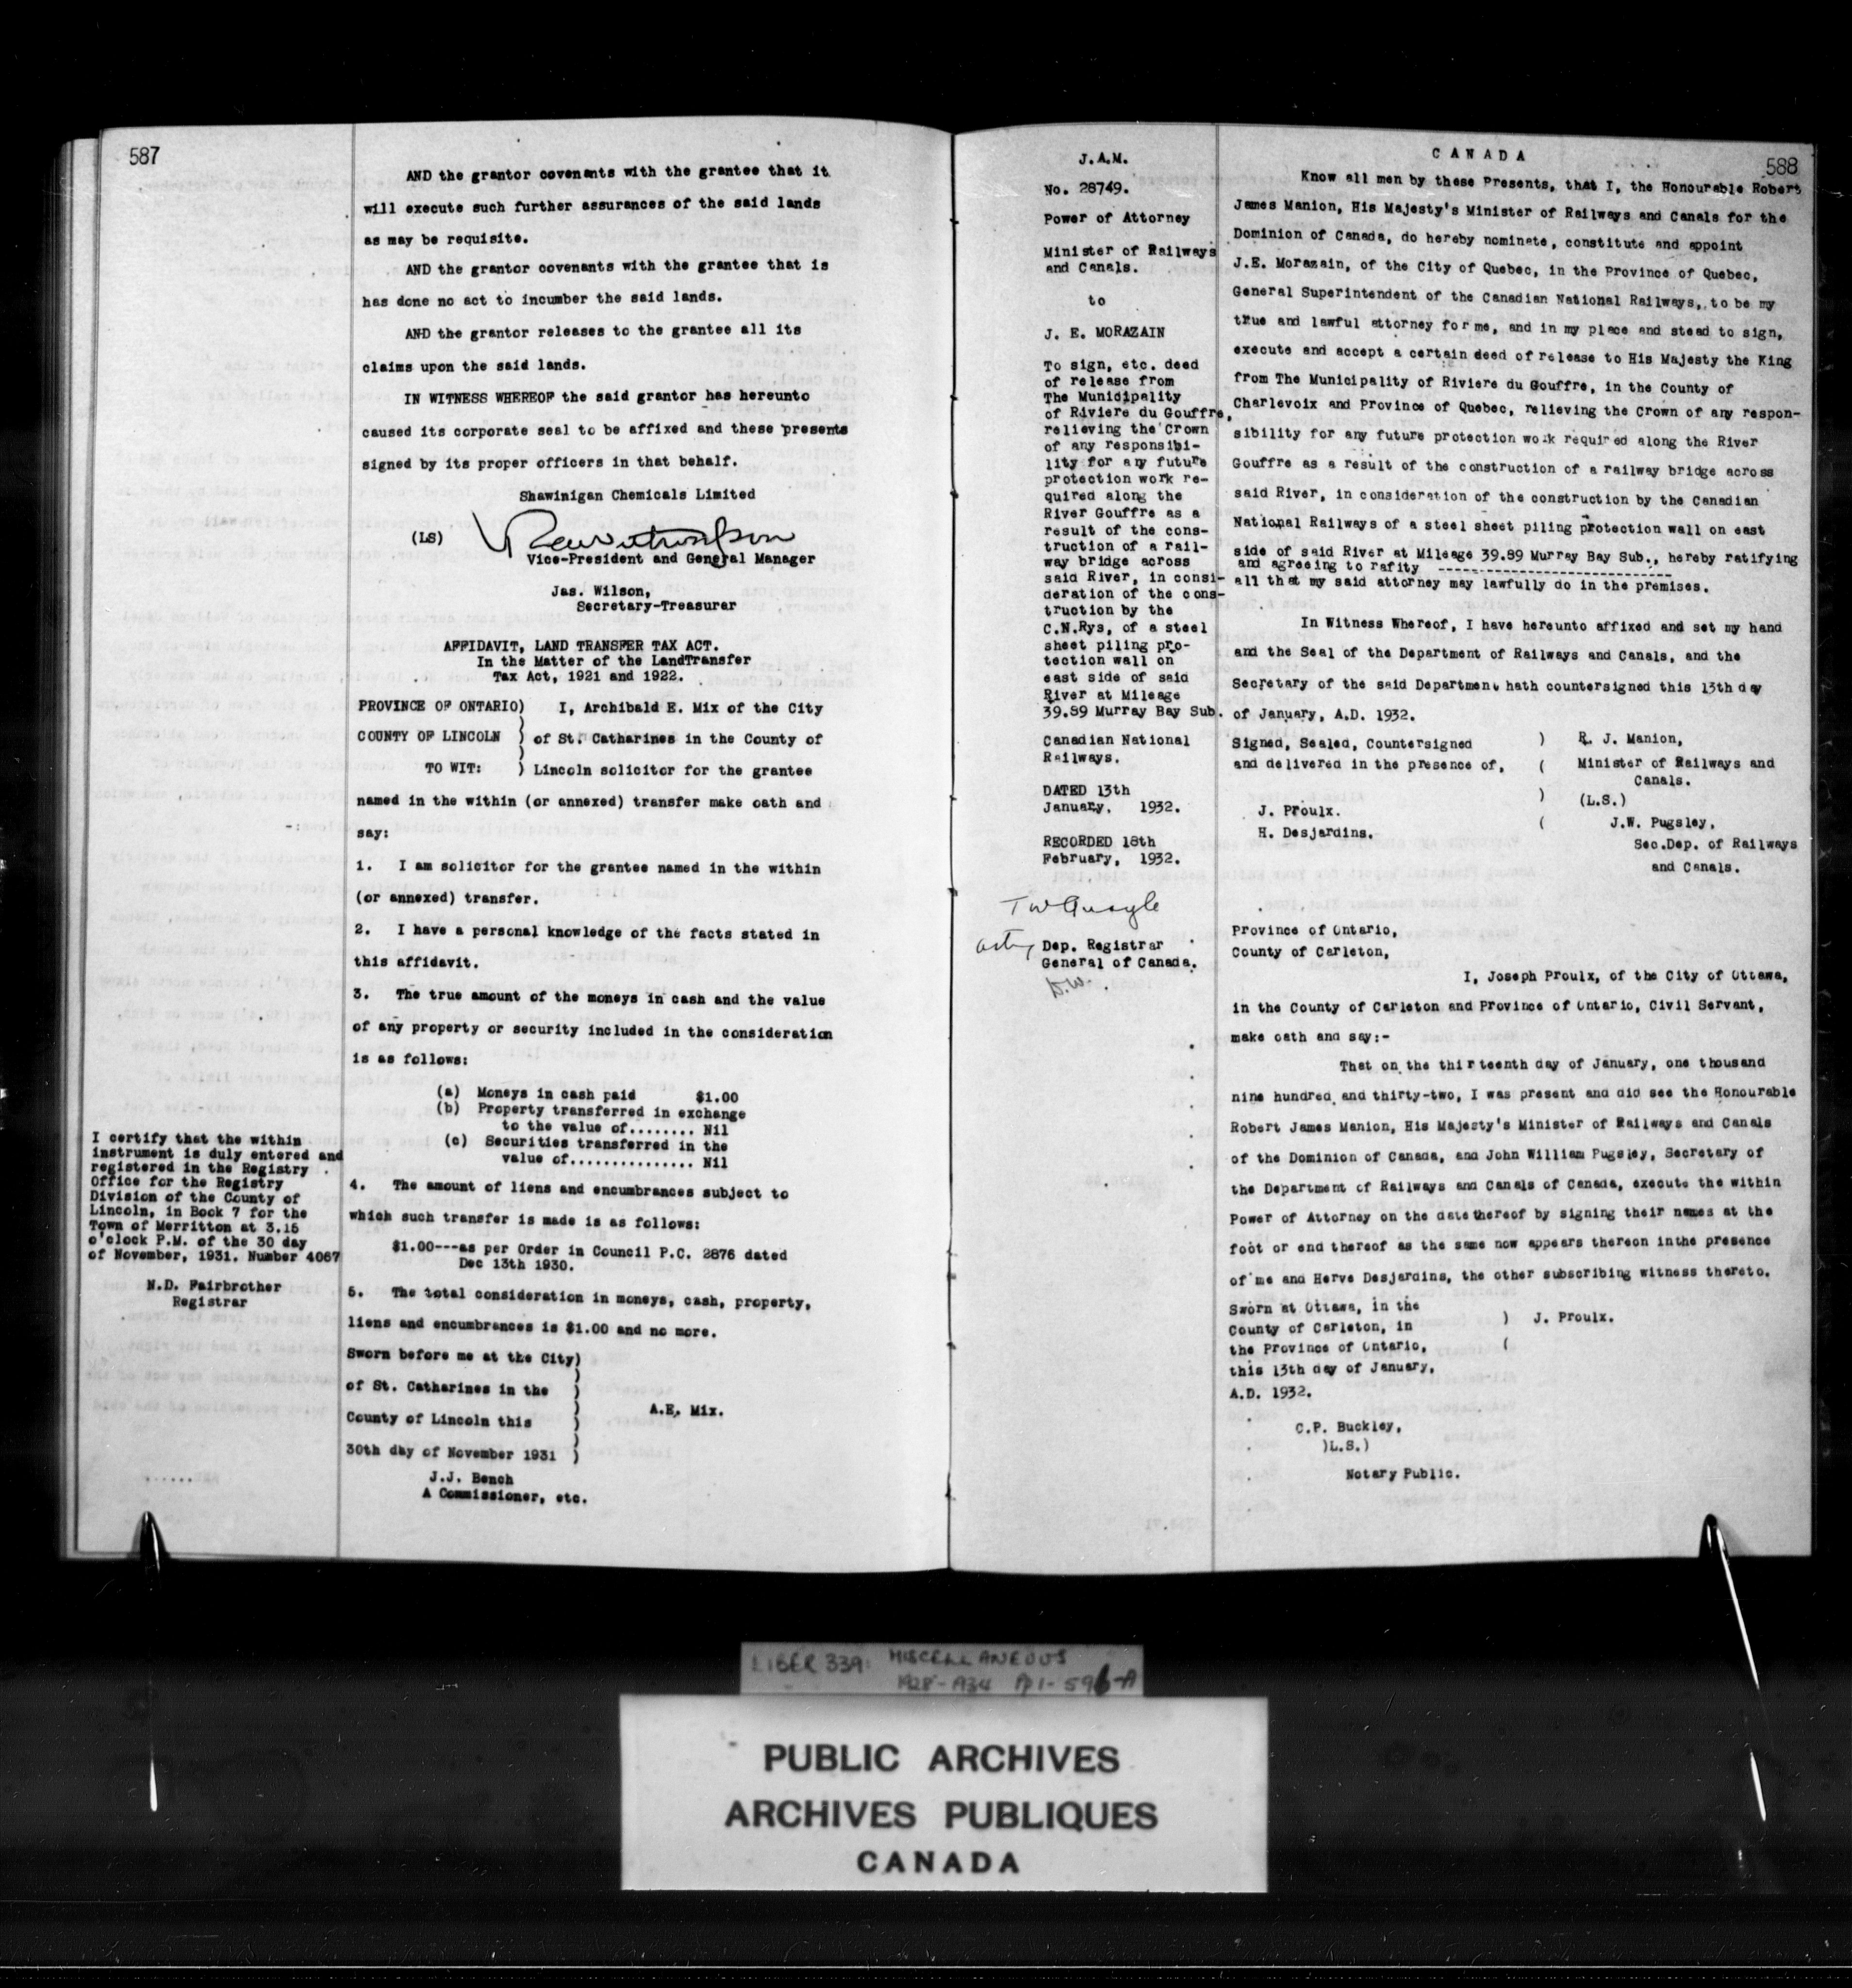 587
AND the grantor covenants with the grantee that it
will execute such further assurances of the said lands
as may be requisite.
AND the grantor covenants with the grantee that is
has done no act to incumber the said lands.
AND the grantor releases to the grantee all its
claims upon the said lands.
IN WITNESS WHEREOF the said grantor has hereunto
caused its corporate seal to be affixed and these presents
signed by its proper officers in that behalf.
Shawinigan Chemicals Limited
(LS)
Vice-President and General Manager
Jas. Wilson,
Secretary-Treasurer
AFFIDAVIT, LAND TRANSFER TAX ACT.
In the Matter of the LandTransfer
Tax Act, 1921 and 1922.
PROVINCE OF ONTARIO) I, Archibald E. Mix of the City
COUNTY OF LINCOLN ) of St. Catharines in the County of
)
TO WIT: ) Lincoln solicitor for the grantee
named in the within (or annexed) transfer make oath and
say:
1. I am solicitor for the grantee named in the within
(or annexed) transfer.
2. I have a personal knowledge of the facts stated in
this affidavit.
3. The true amount of the moneys in cash and the value
of any property or security included in the consideration
is as follows:
(a) Moneys in cash paid $1.00
(b) Property transferred in exchange
to the value of........ Nil
(c) Securities transferred in the
value of............... Nil
4. The amount of liens and encumbrances subject to
which such transfer is made is as follows:
$1.00---as per Order in Council P.C. 2876 dated
Dec 13th 1930.
5. The total consideration in moneys, cash, property,
liens and encumbrances is $1.00 and no more.
Sworn before me at the City)
)
of St. Catharines in the )
) A.E. Mix.
County of Lincoln this )
)
30th day of November 1931 )
J.J. Bench
A Commissioner, etc.
I certify that the within
instrument is duly entered and
registered in the Registry
Office for the Registry
Division of the County of
Lincoln, in Book 7 for the
Town of Merritton at 3.15
o'clock P.M. of the 30 day
of November, 1931. Number 4067
N.D. Fairbrother
Registrar
......
J.A.M.
No. 28749.
Power of Attorney
Minister of Railways
and Canals.
to
J. E. MORAZAIN
To sign, etc. deed
of release from
The Municipality
of Riviere du Gouffre,
relieving the Crown
of any responsibi-
lity for any future
protection work re-
quired along the
River Gouffre as a
result of the cons-
truction of a rail-
way bridge across
said River, in consi-
deration of the cons-
truction by the
C.N.Rys, of a steel
sheet piling pro-
tection wall on
east side of said
River at Mileage
39.89 Murray Bay Sub.
Canadian National
Railways.
DATED 13th
January, 1932.
RECORDED 18th
February, 1932.
Acting Dep. Registrar
General of Canada.
D.W.
CANADA
588
Know all men by these Presents, that I, the Honourable Robert
James Manion, His Majesty's Minister of Railways and Canals for the
Dominion of Canada, do hereby nominate, constitute and appoint
J.E. Morazain, of the City of Quebec, in the Province of Quebec,
General Superintendent of the Canadian National Railways, to be my
true and lawful attorney for me, and in my place and stead to sign,
execute and accept a certain deed of release to His Majesty the King
from The Municipality of Riviere du Gouffre, in the County of
Charlevoix and Province of Quebec, relieving the Crown of any respon-
sibility for any future protection work required along the River
Gouffre as a result of the construction of a railway bridge across
said River, in consideration of the construction by the Canadian
National Railways of a steel sheet piling protection wall on east
side of said River at Mileage 39.89 Murray Bay Sub., hereby ratifying
and agreeing to rafity ----------------------------
all that my said attorney may lawfully do in the premises.
In Witness Whereof, I have hereunto affixed and set my hand
and the Seal of the Department of Railways and Canals, and the
Secretary of the said Department hath countersigned this 13th day
of January, A.D. 1932.
Signed, Sealed, Countersigned ) R. J. Manion,
and delivered in the presence of, ( Minister of Railways and
Canals.
) (L.S.)
J. Proulx.
H. Desjardins. ( J.W. Pugsley,
Sec.Dep. of Railways
and Canals.
Province of Ontario,
County of Carleton,
I, Joseph Proulx, of the City of Ottawa,
in the County of Carleton and Province of Ontario, Civil Servant,
make oath and say:-
That on the thirteenth day of January, one thousand
nine hundred and thirty-two, I was present and did see the Honourable
Robert James Manion, His Majesty's Minister of Railways and Canals
of the Dominion of Canada, and John William Pugsley, Secretary of
the Department of Railways and Canals of Canada, execute the within
Power of Attorney on the date thereof by signing their names at the
foot or end thereof as the same now appears thereon inthe presence
of me and Herve Desjardins, the other subscribing witness thereto.
Sworn at Ottawa, in the
County of Carleton, in ) J. Proulx.
the Province of Ontario, (
this 13th day of January,
A.D. 1932.
C.P. Buckley,
)L.S.)
Notary Public.
LIBER 339: MISCELLANEOUS
1928-1934 Pp 1-596-A
PUBLIC ARCHIVES
ARCHIVES PUBLIQUES
CANADA